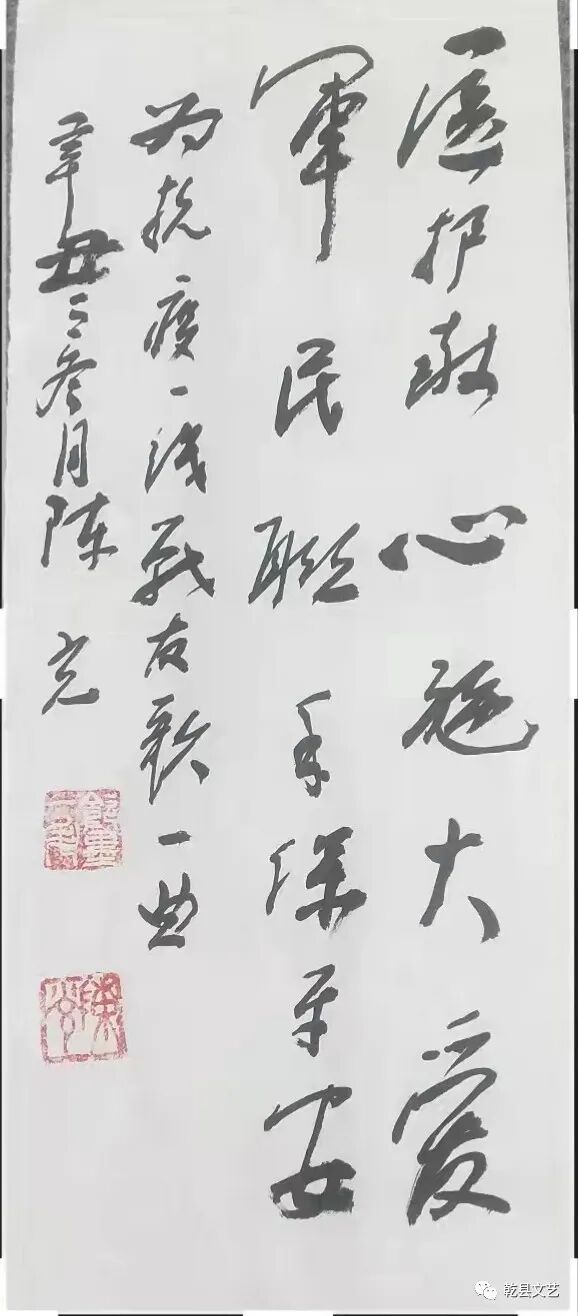 医护献心施大爱
军民聯手保平安
为抗疫一线战友歌一曲
辛丑年冬月陈光
乾县文艺